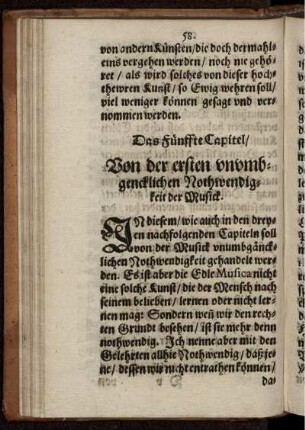 58.
von andern Künsten/die doch dermahl-
eins vergehen werden/noch nie gehö-
ret/ als wird solches von dieser hoch-
thewren Kunst/ so Ewig wehren soll/
viel weniger können gesagt vnd ver-
nommen werden.
Das Fünffte Capitel/
Von der ersten vnvmb-
gencklichen Nothwendig-
keit der Musick.
IN diesem/wie auch in den drey-
en nachfolgenden Capiteln soll
von der Musick vnumbgänck-
lichen Nothwendigkeit gehandelt wer-
den. Es ist aber die Edle Musica nicht
eine solche Kunst/die der Mensch nach
seinem belieben/ lernen oder nicht ler-
nen mag: Sondern weñ wir den rech-
ten Grundt besehen/ ist sie mehr denn
nothwendig. Ich nenne aber mit den
Gelehrten allhie Nothwendig/ daßje-
ne/ dessen wir nicht entrathen können/
da-